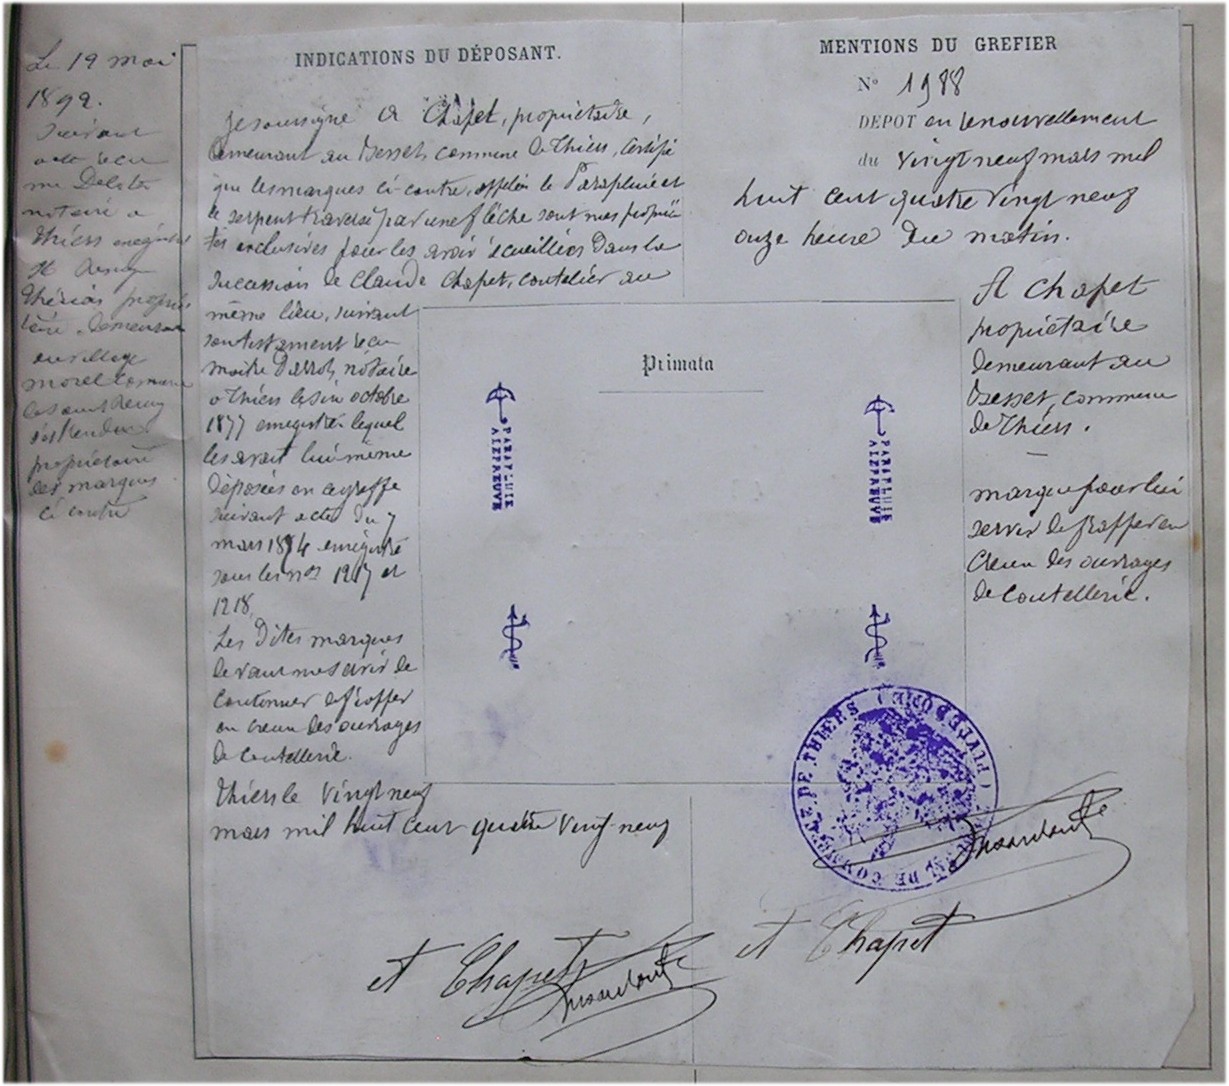 Le 19 mai
1892.
suivant
acte reçu
me Delotz
notaire a
thiers enregistré
propriétaire demeurant
au village
morel commune
de saint Remy
s'est rendu
propriétaire
des marques
ci contre
INDICATIONS DU DÉPOSANT.
Je soussigné A Chapet, propriétaire,
demeurant au Besset, commune de Thiers, Certifie
que les marques ci-contre, appelées le Parapluie et
le serpent traversé par une flèche sont mes proprié
tés exclusives pour les avoir recueillies dans la
succession de Claude Chapet, coutelier au
même lieu, suivant
son testament reçu
maitre Darrot, notaire
a Thiers le six octobre
1877 enregistré lequel
les avait lui même
déposées au greffe
suivant acte du 7
mars 1874 enregistré
sous les nos 1217 et
1218.
Les Dites marques
devant me servir de
continuer de frapper
en creux des ouvrages
de Coutellerie.
Thiers le vingt neuf
mars mil huit cent quatre vingt-neuf
At Chapet
MENTIONS DU GREFIER
No 1988
DEPOT en renouvellement
du vingt neuf mars mil
huit cent quatre vingt neuf
onze heure du matin.
A Chapet
propriétaire
demeurant au
Besset, commune
de Thiers.
marque pour lui
servir de frapper en
Creux des ouvrages
de Coutellerie.
Primata
PARAPLUIE
ALEPREUVE
PARAPLUIE
ALEPREUVE
TRIBUNAL DE COMMERCE DE THIERS (PUY-DE-DOME)
At Chapet